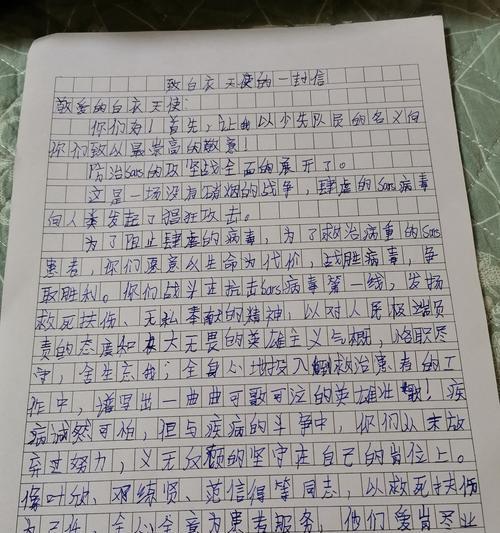 致白衣天使的一封信
敬爱的白衣天使:
你们好!首先,让我以少先队员的名义向
你们致以最崇高的敬意!
防治Sars的攻坚战全面的展开了。
这是一场没有硝烟的战争,肆虐的Sars病毒
向人类发起了猖狂攻击。
为了阻止肆虐的病毒,为了救治病重的Sars
患者,你们愿意以生命为代价,战胜病毒,争
取胜利。你们战斗在抗击Sars病毒第一线,发扬
救死扶伤、无私奉献的精神,以对人民极端负
责的态度和大无畏的英雄主义气概,恪职尽
守,舍生忘我;全身心地投入到救治患者的工
作中,谱写出一曲曲可歌可泣的英雄壮歌!疾
病诚然可怕,但与疾病的斗争中,你们从未放
弃过努力,义无反顾的坚守在自己的岗位上。
像叶欣、邓练贤、范信得等同志,以救死扶伤
为己任,全心全意为患者服务,他们爱岗尽业